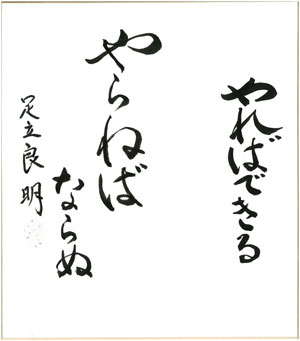 やればできる
やらねば
ならぬ
足立良明